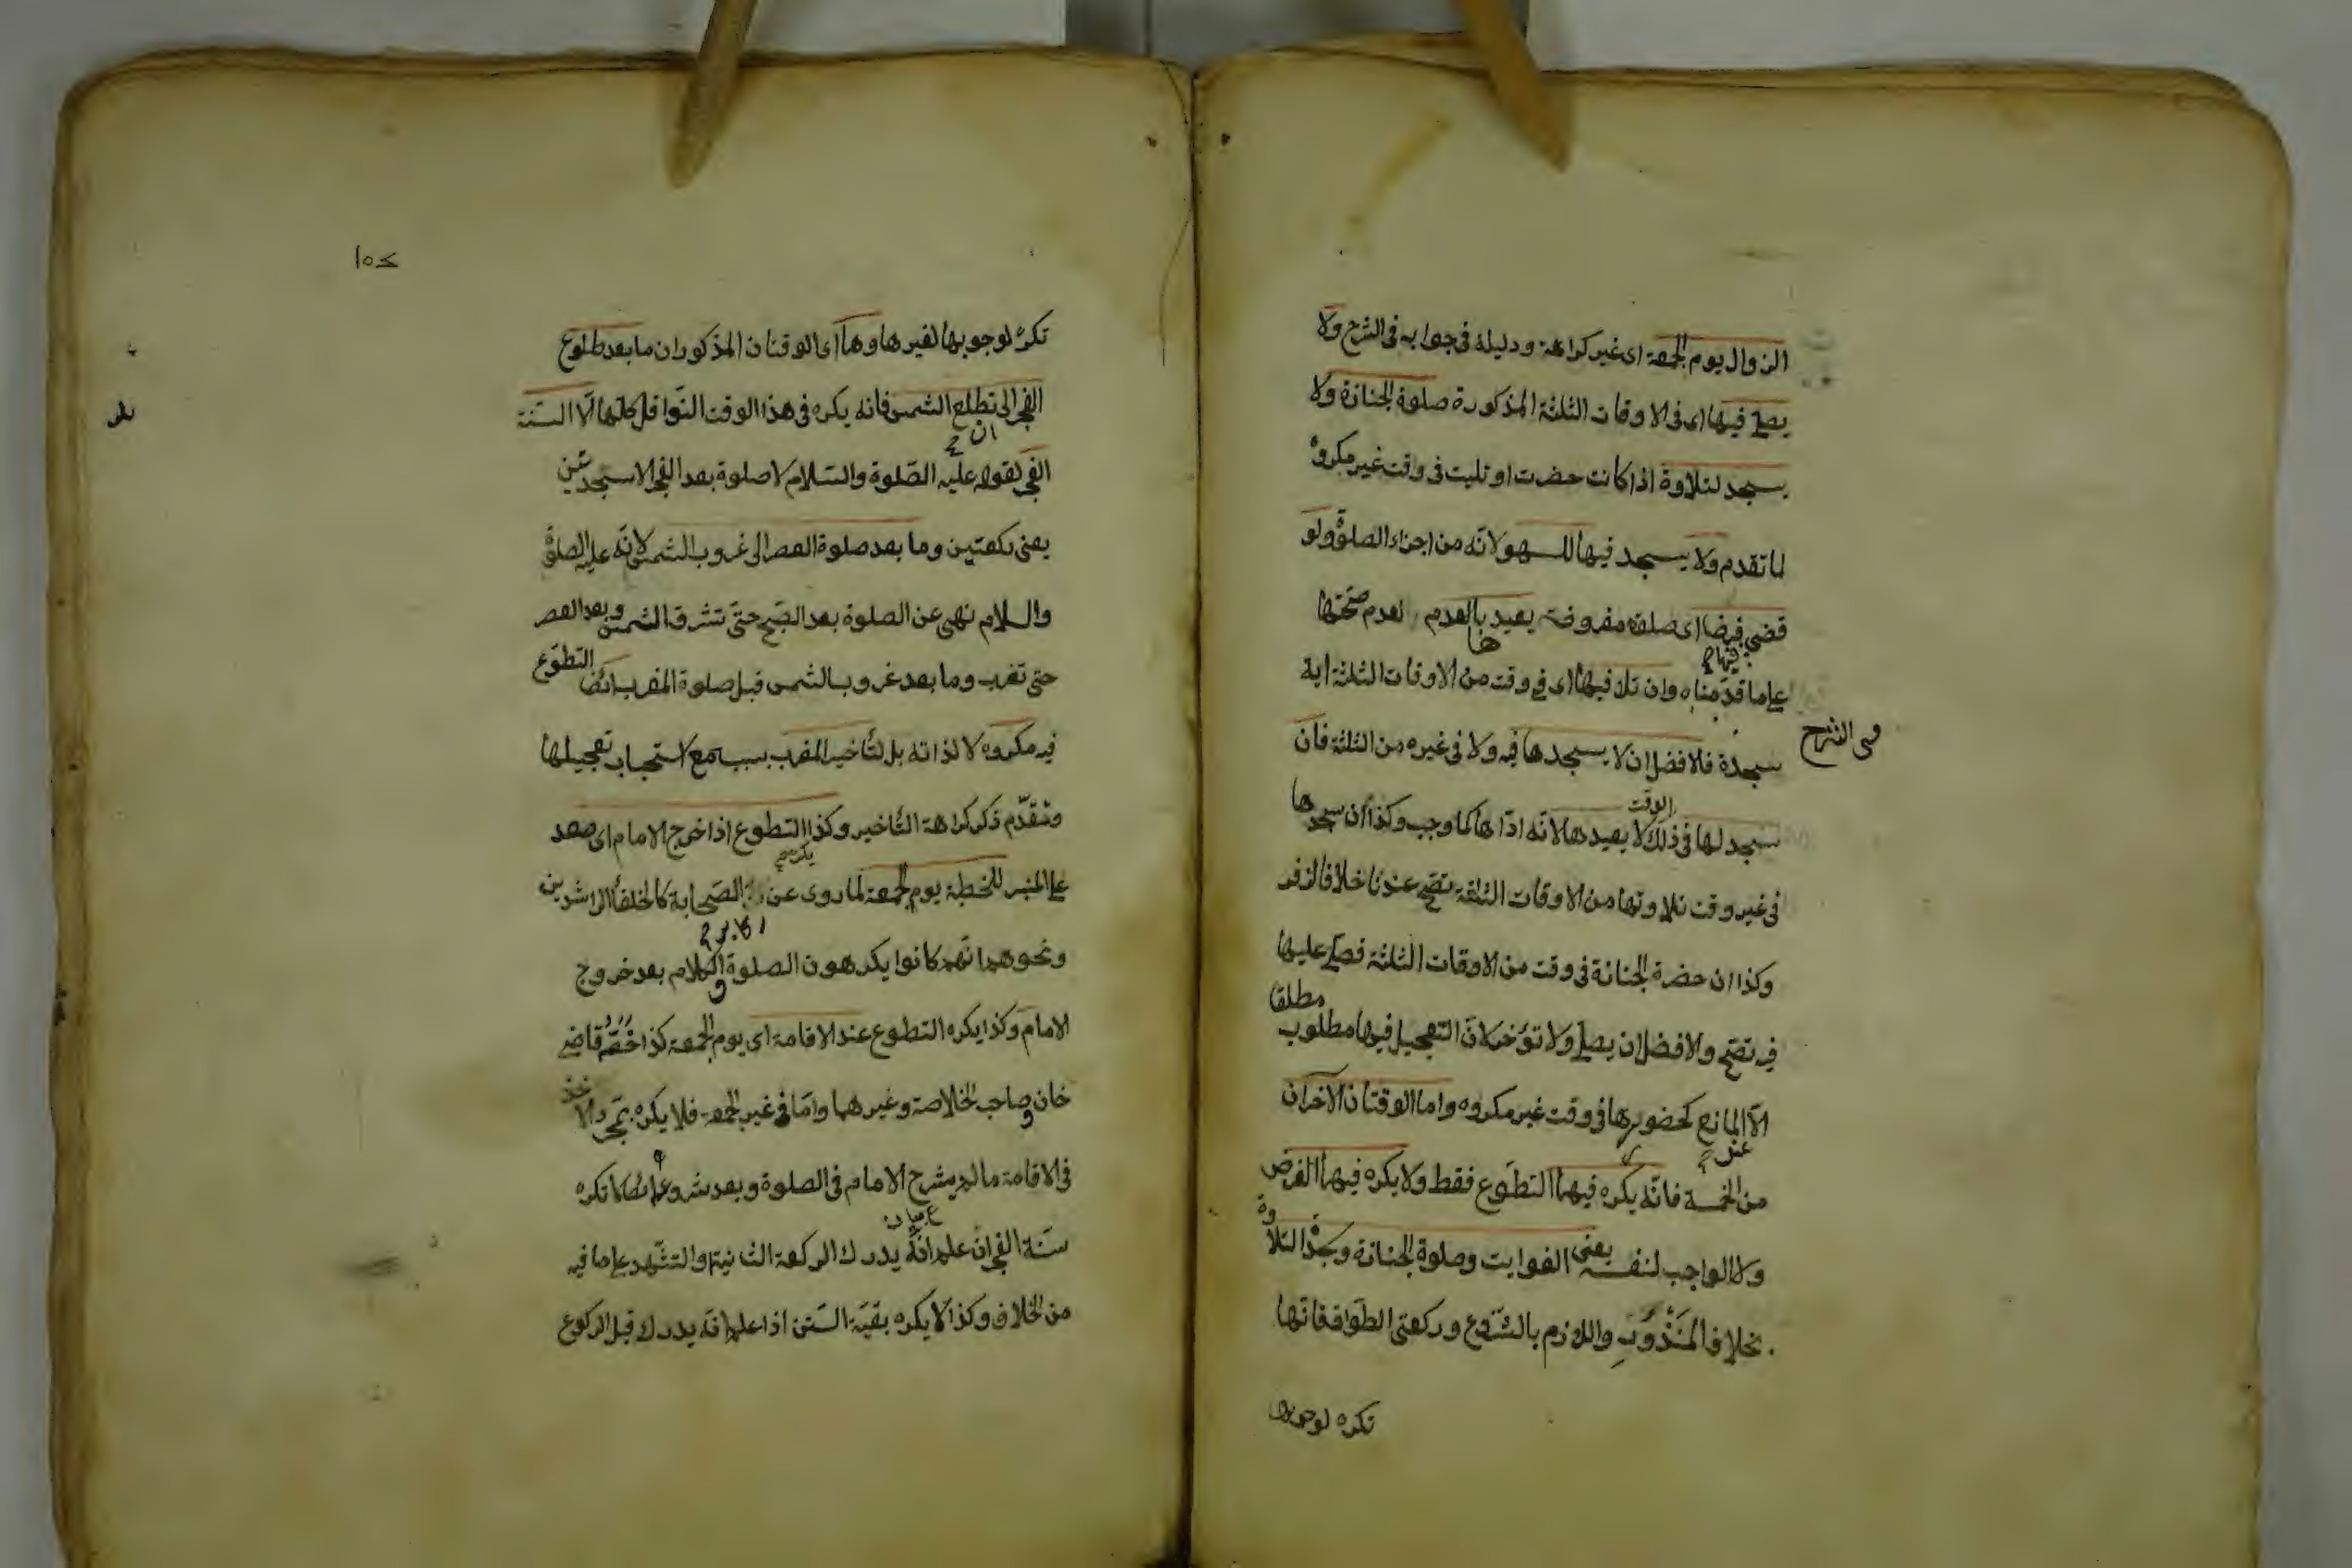 الزوال يوم الجمعة اى غير كراهة ودليله فى جوابه فى الشرح ولا
يصلى فيها اى فى الاوقات الثلثة المذكورة صلوة الجنازة ولا
يسجد لتلاوة اذا كانت حضرت او تليت فى وقت غير مكروه
لما تقدم ولا يسجد فيها للسهو لانه من اجزاء الصلوة ولو
قضى فيها فرضا اى صلوة مفروضة يعيدها لعدم صحتها
على ما قدمناه وان تلا فيها اى فى وقت من الاوقات الثلثة اية
فى الشرح
سجدة فالافضل ان لا يسجدها فيه ولا فى غيره من الثلثة فان
سجد لها فى ذلك الوقت لا يعيدها لانه اداها كما وجب وكذا ان سجدها
فى غير وقت تلاوتها من الاوقات الثلثة تصح عندنا خلافا لزفر
وكذا ان حضرة الجنازة فى وقت من الاوقات الثلثة فصلى عليها
فيه تصح والافضل ان يصلى ولا تؤخر لان التعجيل فيها مطلوب مطلقا
الا المانع كحضورها فى وقت غير مكروه واما الوقتان الآخران
من الخمسة فانه يكره فيهما التطوع فقط ولا يكره فيهما الفرض
ولا الواجب لنفسه يعنى الفوايت وصلوة الجنازة وسجدة التلاوة
بخلاف المنذوب واللازم بالشروع وركعتى الطواف فانها
تكره لوجوبها
١٥٤
تكره لوجوبها لغيرها وهما اى الوقتان المذكوران ما بعد طلوع
الفجر الى ان تطلع الشمس فانه يكره فى هذا الوقت النوافل كلها الا السنة
الفجر لقوله عليه الصلوة والسلام لا صلوة بعد الفجر الا سجدتين
يعنى ركعتين وما بعد صلوة العصر الى غروب الشمس لانه عليه الصلوة
والسلام نهى عن الصلوة بعد الصبح حتى تشرق الشمس وبعد العصر
حتى تغرب وما بعد غروب الشمس قبل صلوة المغرب ايضا التطوع
فيه مكروه لا لذاته بل لتأخير المغرب بسببه مع استحباب تعجيلها
وتقدم ذكر كراهة التأخير وكذا يكره التطوع اذا خرج الامام اى صعد
على المنبر للخطبة يوم الجمعة لما روى عن اكابر الصحابة كالخلفا الراشدين
ونحوهم انهم كانوا يكرهون الصلوة والكلام بعد خروج
الامام وكذا يكره التطوع عند الاقامة اى يوم الجمعة كذا خصه قاضى
خان وصاحب الخلاصة وغيرهما واما فى غير الجمعة فلا يكره بمجرد الاخذ
فى الاقامة ما لم يشرع الامام فى الصلوة وبعد شروعه لا تكره
سنة الفجر ان علم انه يدرك الركعة الثانية او التشهد على ما فيه
من الخلاف وكذا لا يكره بقية السنن اذا علم انه يدرك قبل الركوع